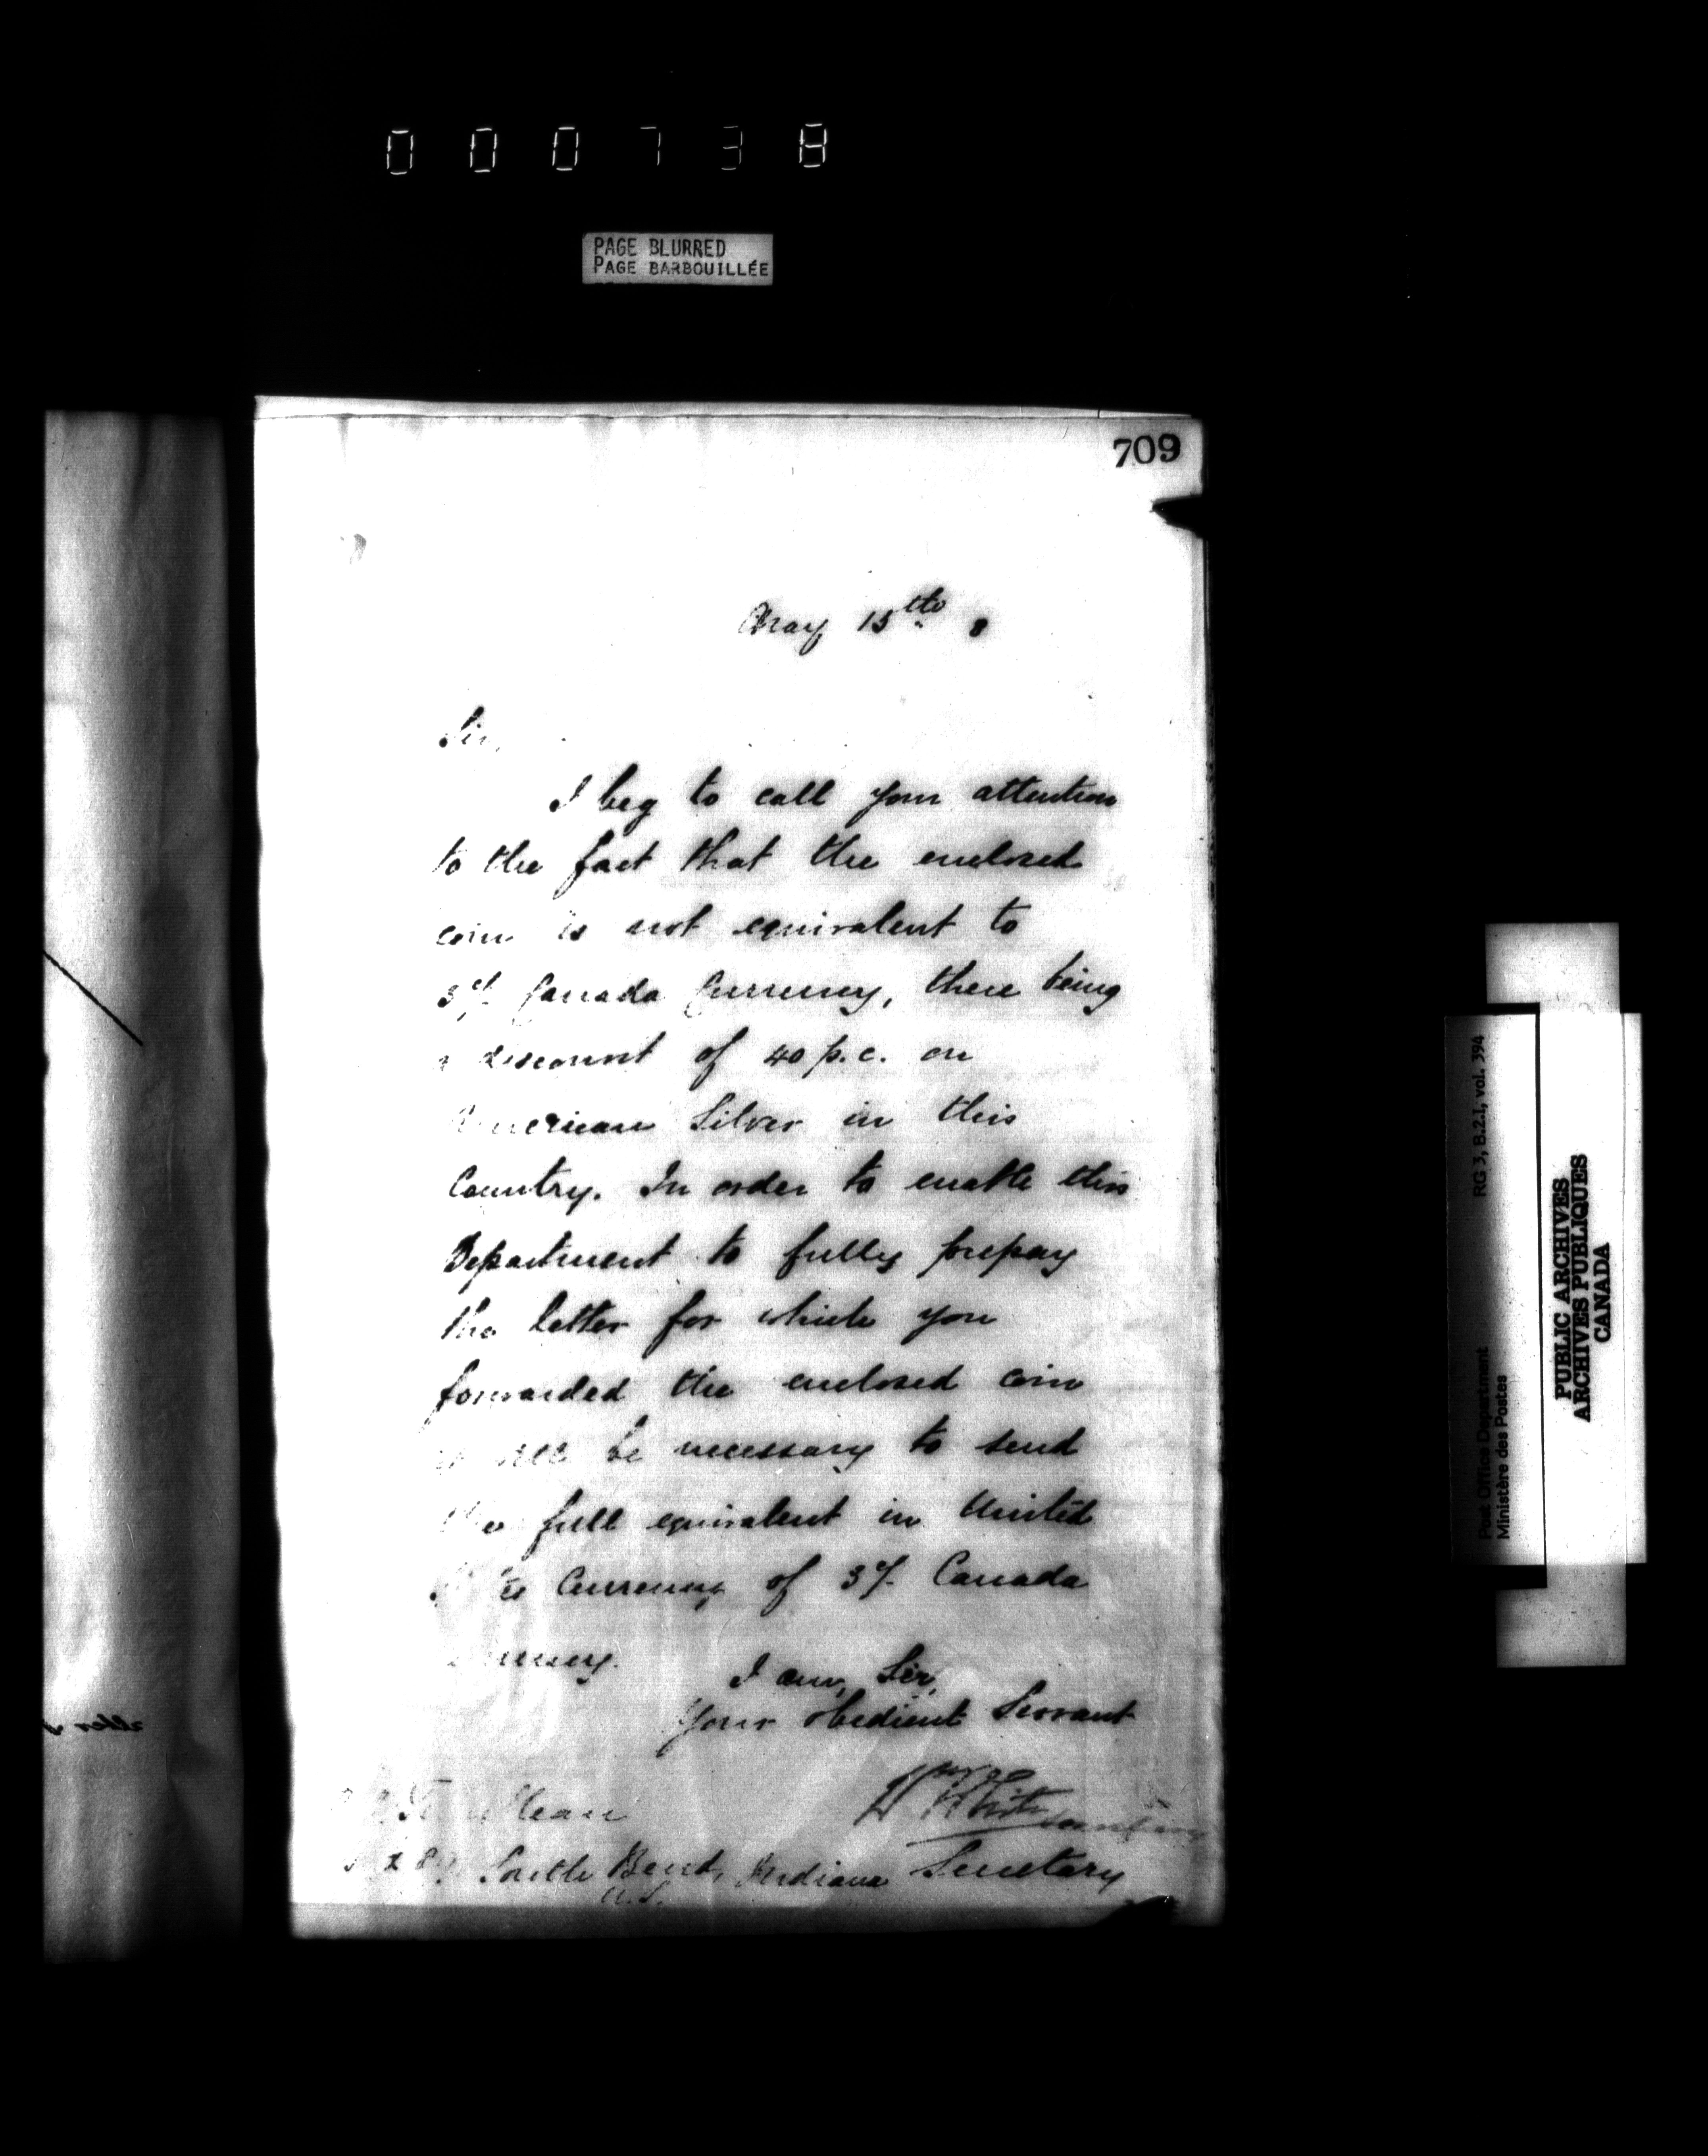 000738
PAGE BLURRED
PAGE BARBOUILLÉE
709
May 15th 8
Sir,
I beg to call your attention
to the fact that the enclosed
coin is not equivalent to
3¢ Canada Currency, there being
a discount of 40 p.c. on
American Silver in this
Country. In order to enable this
Department to fully prepay
the letter for which you
forwarded the enclosed coin
it will be necessary to send
the full equivalent in United
States Currency of 3¢ Canada
Currency.
I am, Sir,
Your obedient Servant
Wm White
Secretary
South Bend, Indiana
U.S.
RG 3, B.2.1, vol. 394
Post Office Department
Ministère des Postes
PUBLIC ARCHIVES
ARCHIVES PUBLIQUES
CANADA